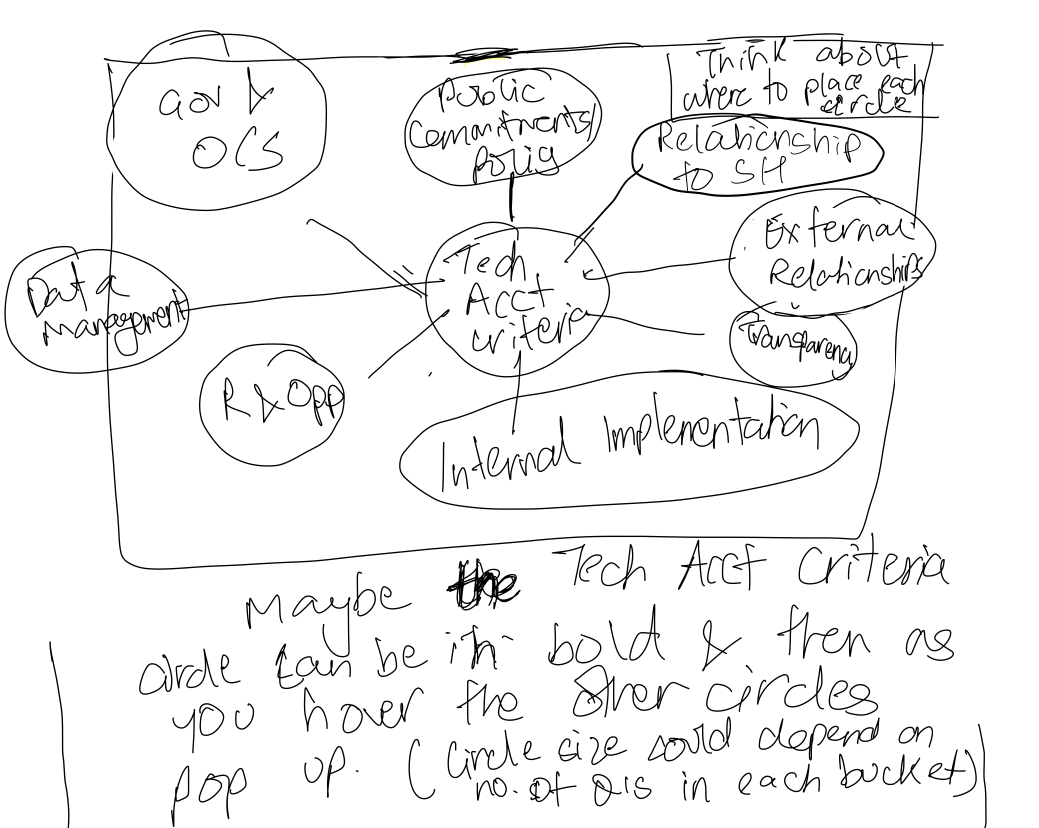 Gov &
OCS
Public
Commitments/
Policy
Think about
where to place each
circle
Relationship
to SH
External
Relationships
Tech
Acct
criteria
Data
Management
Transparency
R & Opp
Internal Implementation
Maybe the Tech Acct Criteria
circle can be in bold & then as
you hover the other circles
pop up. (Circle size could depend on
no. of Q's in each bucket)